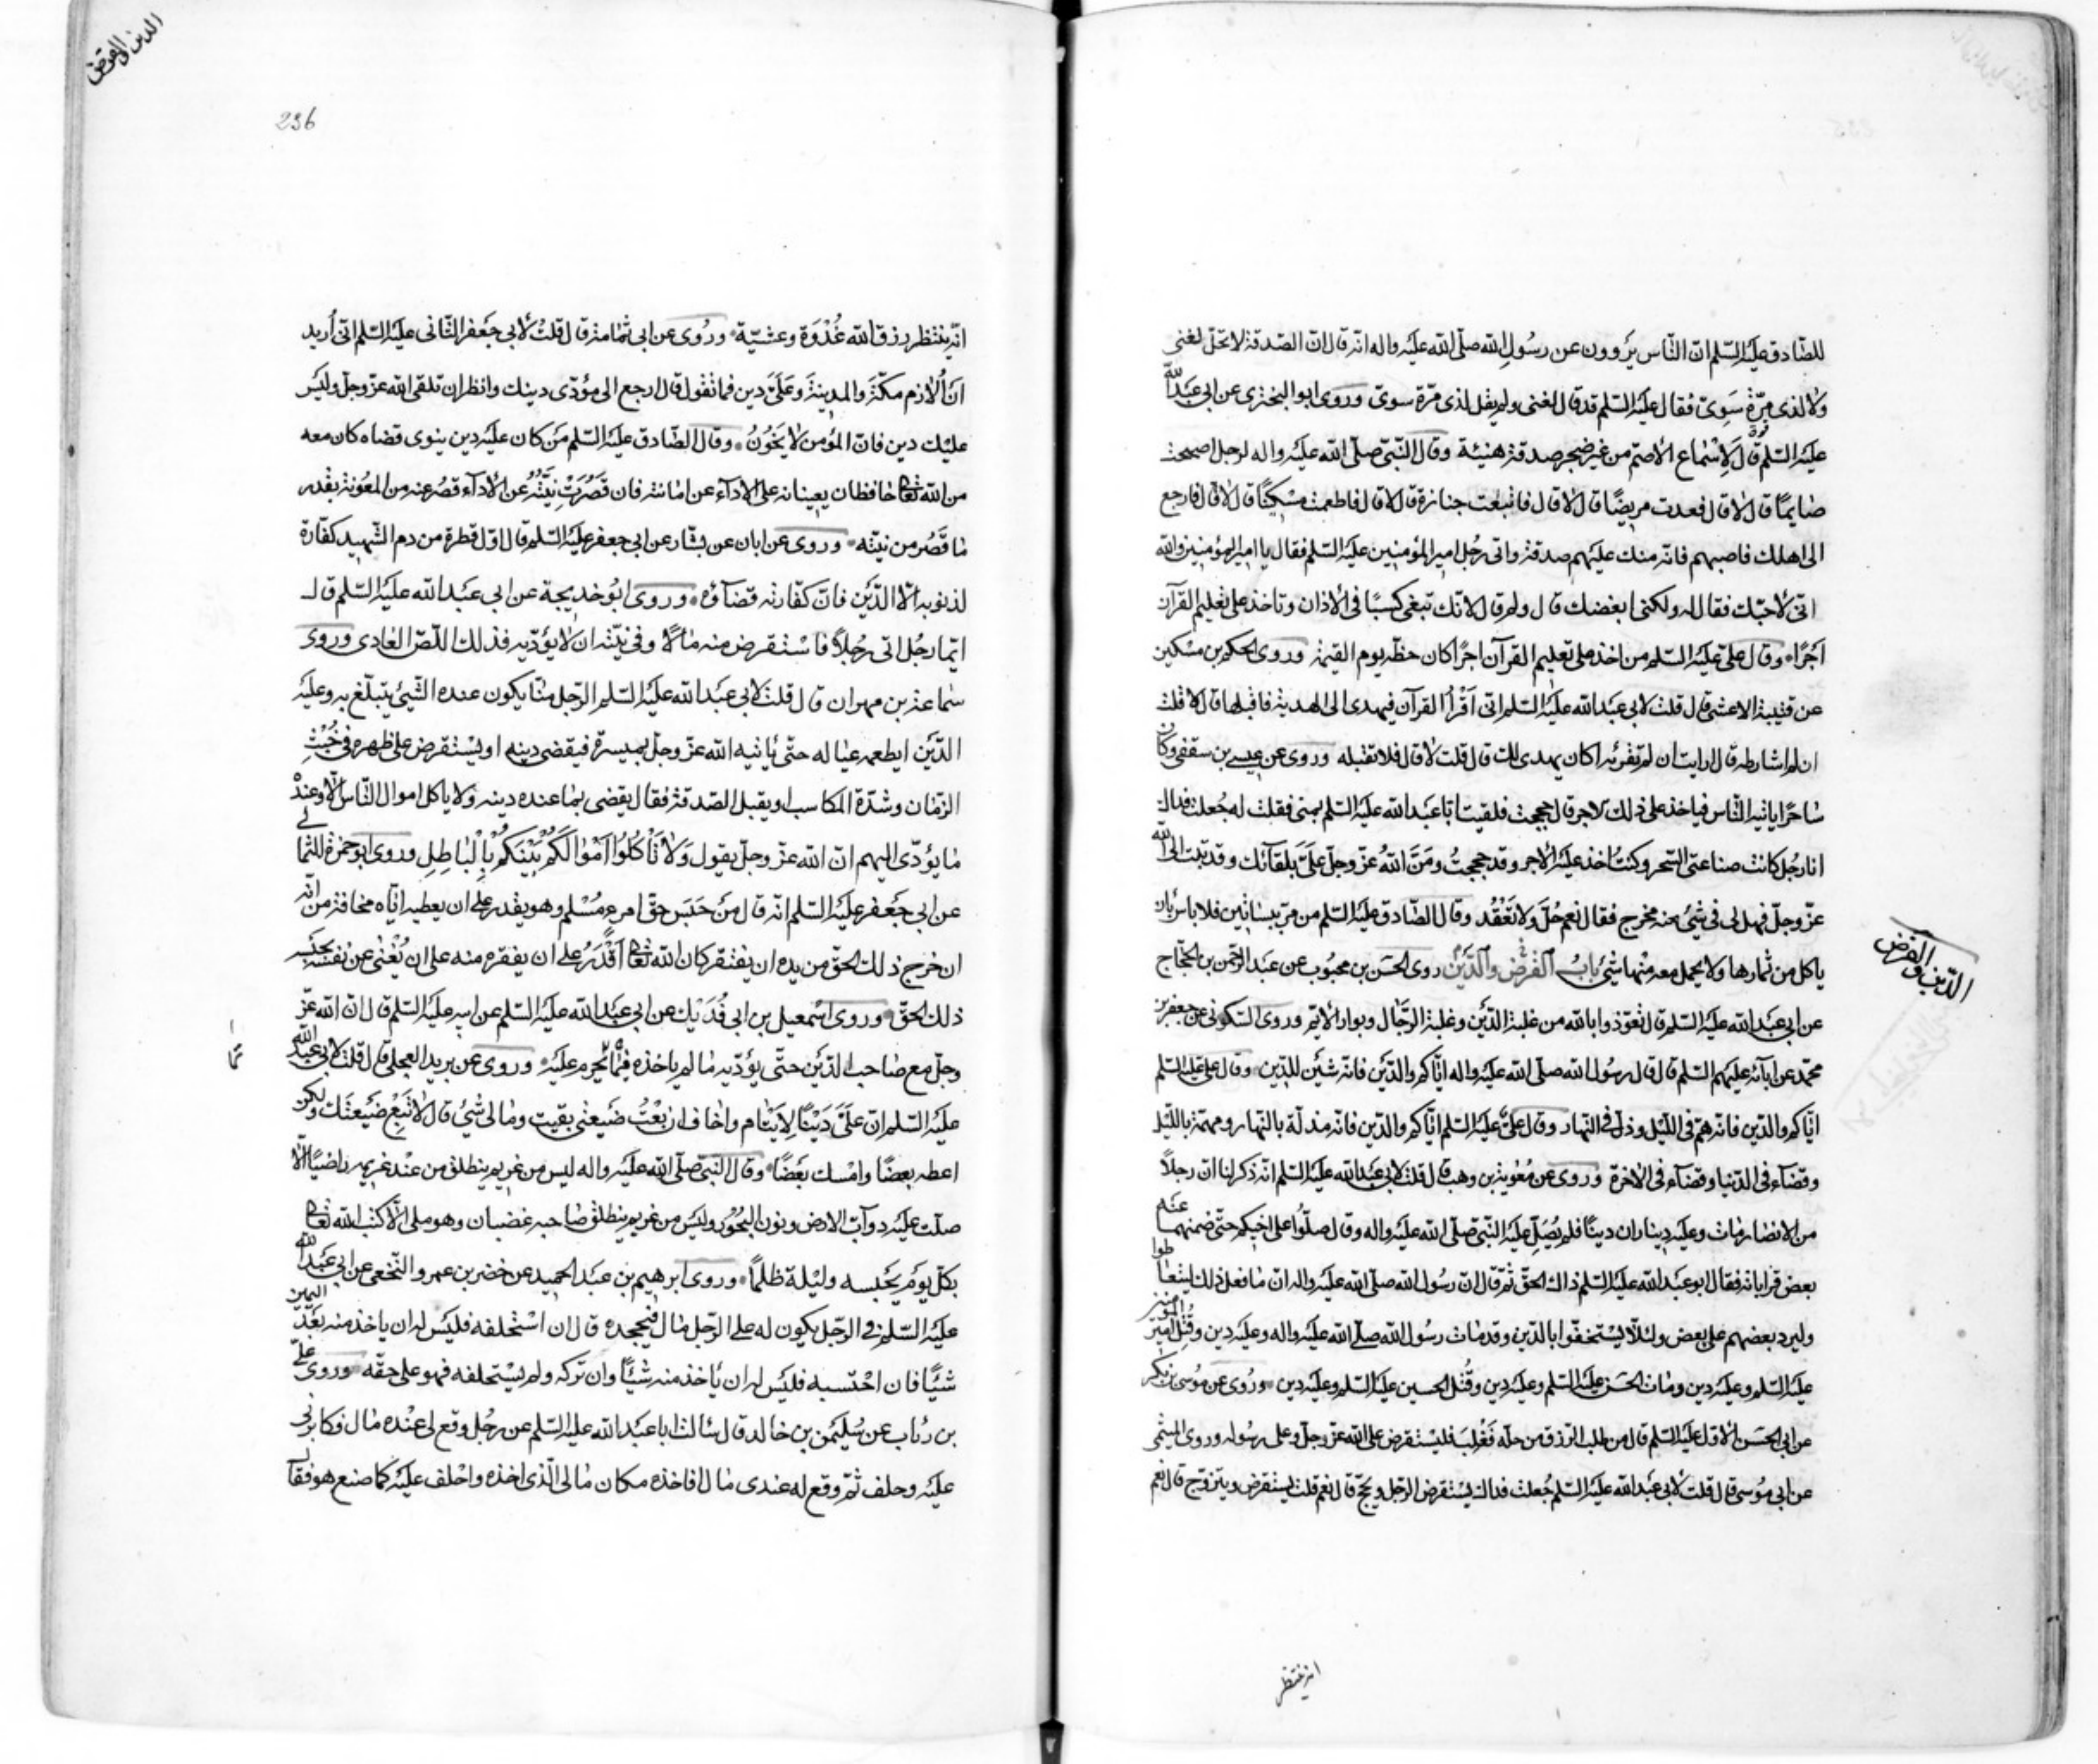 للصّادق عليه السّلم انّ النّاس يروون عن رسول الله صلّى الله عليه واله انّه قال انّ الصّدقة لا تحلّ لغنى
ولا لذى مِرّةٍ سَوِىّ فقال عليه السّلم قد قال لغنى ولم يقل لذى مرّة سوىّ وروى ابو البخترى عن ابى عبد الله
عليه السّلم قال لإسْماع الأصمّ من غير ضجر صدقة هنيئة وقال النّبىّ صلّى الله عليه واله لرجل اصبحت
صايمًا قال لا قال فعدت مريضًا قال لا قال فاتبعت جنازة قال لا قال فاطعمت مسكينًا قال لا قال فارجع
الى اهلك فاصبهم فانّه منك عليهم صدقة واتى رجُل امير المؤمنين عليه السّلم فقال يا امير المؤمنين والله
انّى لأحبّك فقال له ولكنى ابغضك قال ولم قال لانّك تبغى كسبًا فى الأذان وتاخذ على تعليم القرآن
اجرًا وقال علىّ عليه السّلم من اخذ على تعليم القرآن اجرًا كان حظّه يوم القيمة وروى الحكم بن مسكين
عن قتيبة الاعشى قال قلت لابى عبد الله عليه السّلم انّى أَقْرأ القرآن فيهدى الىّ الهدية فاقبلها قال لا قلت
ان لم اشارطه قال ارايت ان لم تقرئه اكان يهدى لك قال قلت لا قال فلا تقبله وروى عن عيسى بن سقفى وكان
ساحرًا ياتيه النّاس فياخذ على ذلك لاجر قال حججت فلقيت ابا عبد الله عليه السّلم بمنى فقلت له جُعلت فداك
انا رجُل كانت صناعتى السّحر وكنتُ اخذ عليه الأجر وقد حججتُ ومَنَّ اللهُ عزّ وجلّ علىَّ بلقآئك وقد تبت الى الله
عزّ وجلّ فهل لى فى شىء منه مخرج فقال نعم حُلَّ ولا تَعْقُد وقال الصّادق عليه السّلم من مرّ ببساتين فلا باس بان
ياكل من ثمارها ولا يحمل معه منها شىء بابُ القرض والدّين روى الحسن بن محبُوب عن عبد الرّحمن بن الحجّاج
عن ابى عبد الله عليه السّلم قال تعوّذوا بالله من غلبة الدّين وغلبة الرّجال وبوار الأيّم وروى السّكونى عن جعفر بن
محمّد عن ابآئه عليهم السّلم قال قال رسُول الله صلّى الله عليه واله ايّاكم والدّين فانّه شَين للدّين وقال على عليه السّلم
ايّاكم والدّين فانّه همّ فى اللّيل وذلّ فى النّهار وقال علىّ عليه السّلم ايّاكم والدين فانّه مذلّة بالنّهار ومهمّة باللّيل
وقضآء فى الدّنيا وقضآء فى الاخرة وروى عن مُعٰوية بن وهب قال قلت لابى عبد الله عليه السّلم انّه ذكر لنا انّ رجلاً
من الانصار مات وعليه ديناران دينًا فلم يُصَلِّ عليه النّبىّ صلّى الله عليه واله وقال صلّوا على اخيكم حتّى ضمنهما عنه
بعض قراباته فقال ابو عبد الله عليه السّلم ذاك الحقّ ثمّ قال انّ رسول الله صلّى الله عليه واله انّما فعل ذلك ليتعاطوا
وليرد بعضهم على بعض ولئلّا يستخفّوا بالدّين وقد مات رسول الله صلّى الله عليه واله وعليه دين وقُتِل امير المؤمنين
عليه السّلم وعليه دين ومات الحسن عليه السّلم وعليه دين وقُتل الحسين عليه السّلم وعليه دين وروى عن مُوسى بن بكر
عن ابى الحسن الأوّل عليه السّلم قال من طلب الرّزق من حلّه فغُلِبَ فليستقرض على الله عزّ وجلّ وعلى رسوله وروى الميثمى
عن ابى مُوسى قال قلت لأبى عبد الله عليه السّلم جُعلت فداك يستقرض الرّجل ويحجّ قال نعم قلت يستقرض ويتزوّج قال نعم
انه ينتظر
الدّين والقرض
الدين والقرض
236
انّه ينتظر رزق الله غُدْوَة وعشيّة وروى عن ابى ثمامة قال قلتُ لأبى جعفر الثّانى عليه السّلم انّى أريد
انْ أُلازم مكّة والمدينة وعَلىَّ دين فما تقول قال ارجع الى مؤدّى دينك وانظر ان تلقى الله عزّ وجلّ وليس
عليك دين فانّ المؤمن لا يَخُونُ وقال الصّادق عليه السّلم مَن كان عليه دين ينوى قضاه كان معه
من الله تعالى حافظان يعينانه على الاداء عن امانته فان قَصُرَتْ نيّتُهُ عن الأدآء قصُر عنه من المعُونة بقدر
ما قَصُر من نيّته وروى عن ابان عن بشّار عن ابى جعفر عليه السّلم قال اوّل قطرة من دم الشّهيد كفّارة
لذنوبه الّا الدّين فانّ كفّارته قضآؤه وروى ابُو خديجة عن ابى عبد الله عليه السّلم قال
ايّما رجُل اتى رجُلاً فاسْتقرض منه مالاً وفى نيّته ان لا يؤدّيه فذلك اللّصّ العادى وروى
سماعة بن مهران قال قلت لابى عبد الله عليه السّلم الرّجل منّا يكون عنده الشّىء يتبلّغ به وعليه
الدّين ايطعمه عياله حتّى ياتيه الله عزّ وجلّ بميسرة فيقضى دينه او يستقرض على ظهره فى خُبْثِ
الزّمان وشدّة المكاسب او يقبل الصّدقة فقال يقضى بما عنده دينه ولا ياكل اموال النّاس الّا وعنده
ما يؤدّى اليهم انّ الله عزّ وجلّ يقول وَلا تَأْكُلُوا أَمْوالَكُمْ بَيْنَكُمْ بِالْباطِلِ وروى ابو حمزة الثمالى
عن ابى جعفر عليه السّلم انّه قال مَن حَبَس حقّ امرءٍ مُسْلم وهو يقدر على ان يعطيه ايّاه مخافة من انّه
ان خرج ذلك الحقّ من يده ان يفتقر كان الله تعالى أَقْدَرُ على ان يفقره منه على ان يُغْنى عن نفسه بحبسه
ذلك الحقّ وروى اسمعيل بن ابى فُدَيْك عن ابى عبد الله عليه السّلم عن ابيه عليه السّلم قال انّ الله عزّ
وجلّ مع صاحب الدّين حتّى يؤدّيه ما لم ياخذه فيما يحرم عليه وروى عن بريد العجلى قال قلت لابى عبد الله
عليه السّلم انّ علىَّ دَيْنًا لِأَيْتام واخاف ان بعْتُ ضيعتى بقيت ومالى شىء قال لا تَبِعْ ضيعتك ولكن
اعطه بعضًا وامْسك بعضًا وقال النبىّ صلّى الله عليه واله ليس من غريم ينطلق من عند غريمه راضيًا الّا
صلّت عليه دوآبّ الارض ونون البحُور وليس من غريم ينطلق صاحبه غضبان وهو ملى الّا كتب الله تعالى
بكلّ يوم يحبسه وليلة ظلمًا وروى ابرهيم بن عبد الحميد عن خضر بن عمرو النّخعى عن ابى عبد الله
عليه السّلم فى الرّجل يكون له على الرّجل مال فيجحده قال ان اسْتحلفه فليس له ان ياخذ منه بعد اليمين
شيئًا فان احْتسبه فليس له ان ياخذ منه شيئًا وان تركه ولم يسْتحلفه فهو على حقّه وروى علىّ
بن رئاب عن سُليمن بن خالد قال سالت ابا عبد الله عليه السّلم عن رجُل وقع لى عنْده مال فكابرنى
عليه وحلف ثمّ وقع له عندى مال افاخذه مكان مالى الّذى اخذه واحْلف عليه كما صنع هو فقال